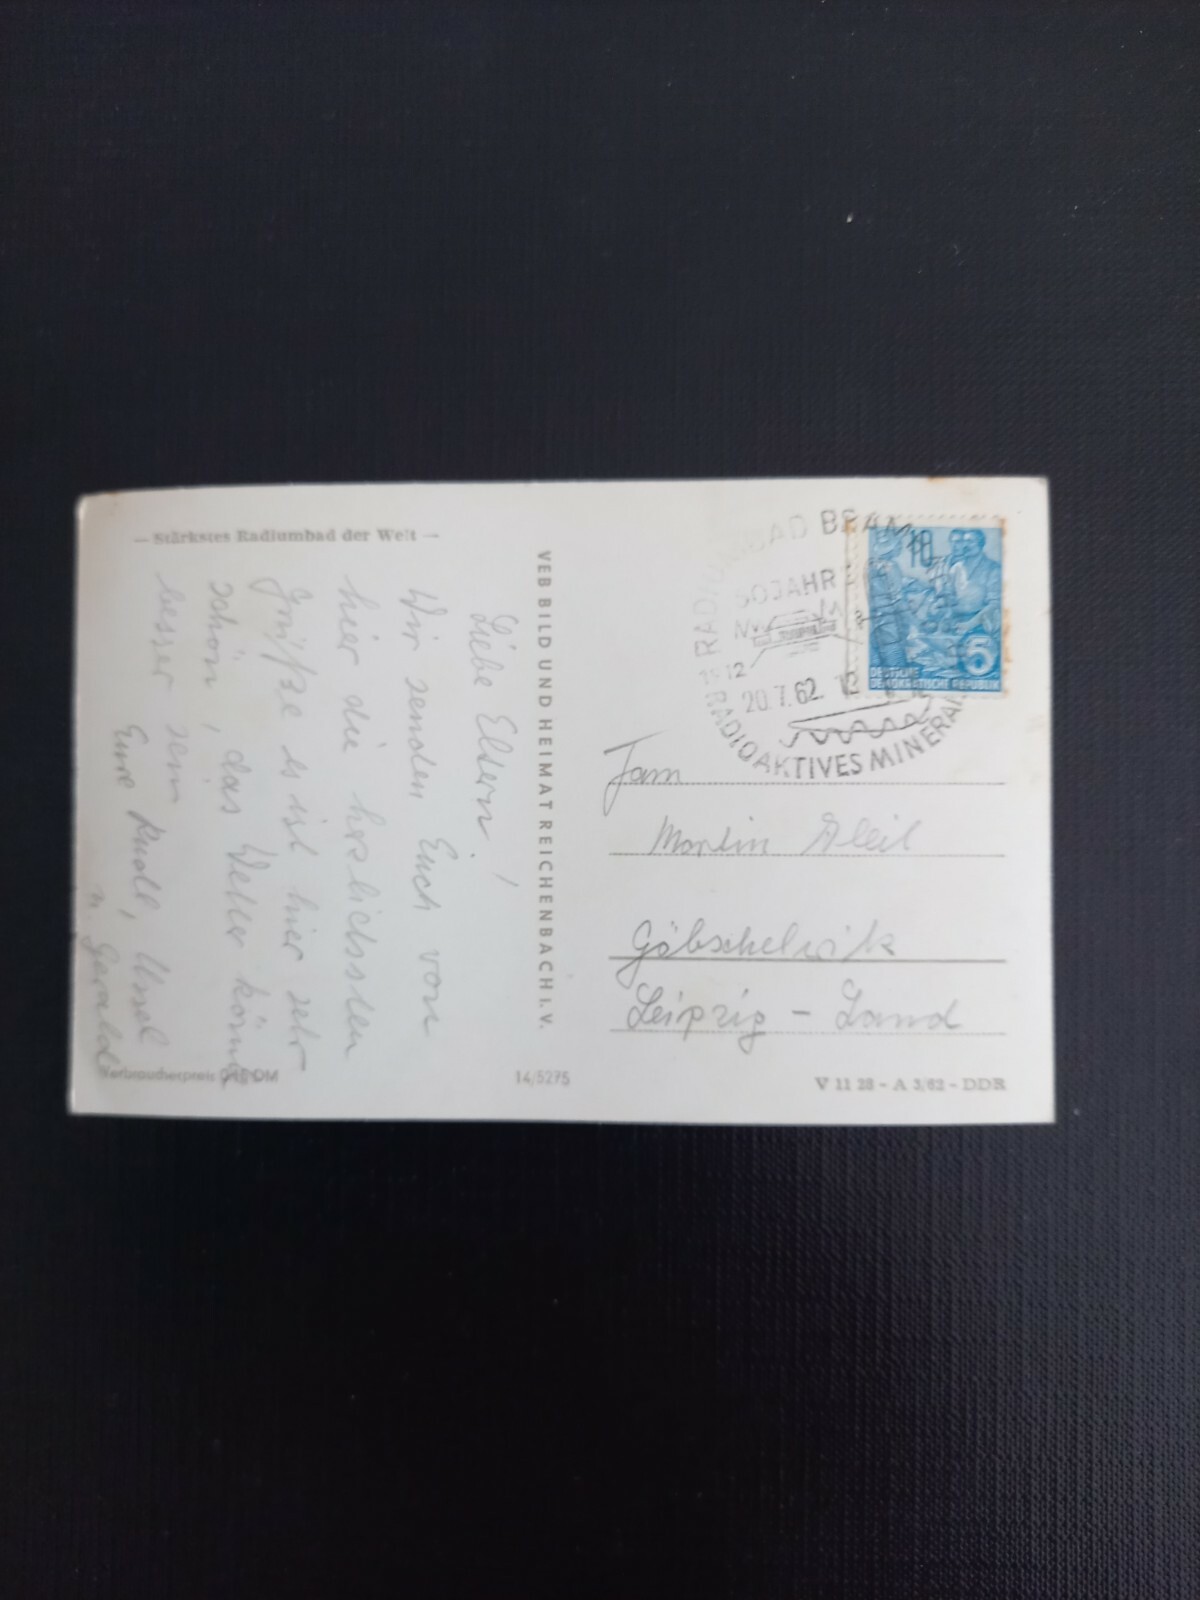 — Stärkstes Radiumbad der Welt —
Liebe Eltern!
Wir senden Euch von
hier die herzlichsten
Grüße es ist hier sehr
schön, das Wetter könnte
besser sein
Eure Rudi, Ursel
u. Gerald
Verbraucherpreis DM
VEB BILD UND HEIMAT REICHENBACH I. V.
14/5275
RADIUMBAD BRAM
50 JAHR
1912
20.7.62
RADIOAKTIVES MINERAL
5
DEUTSCHE
DEMOKRATISCHE REPUBLIK
Fam
Martin
Göbschelwitz
Leipzig - Land
V 11 28 - A 3/62 - DDR